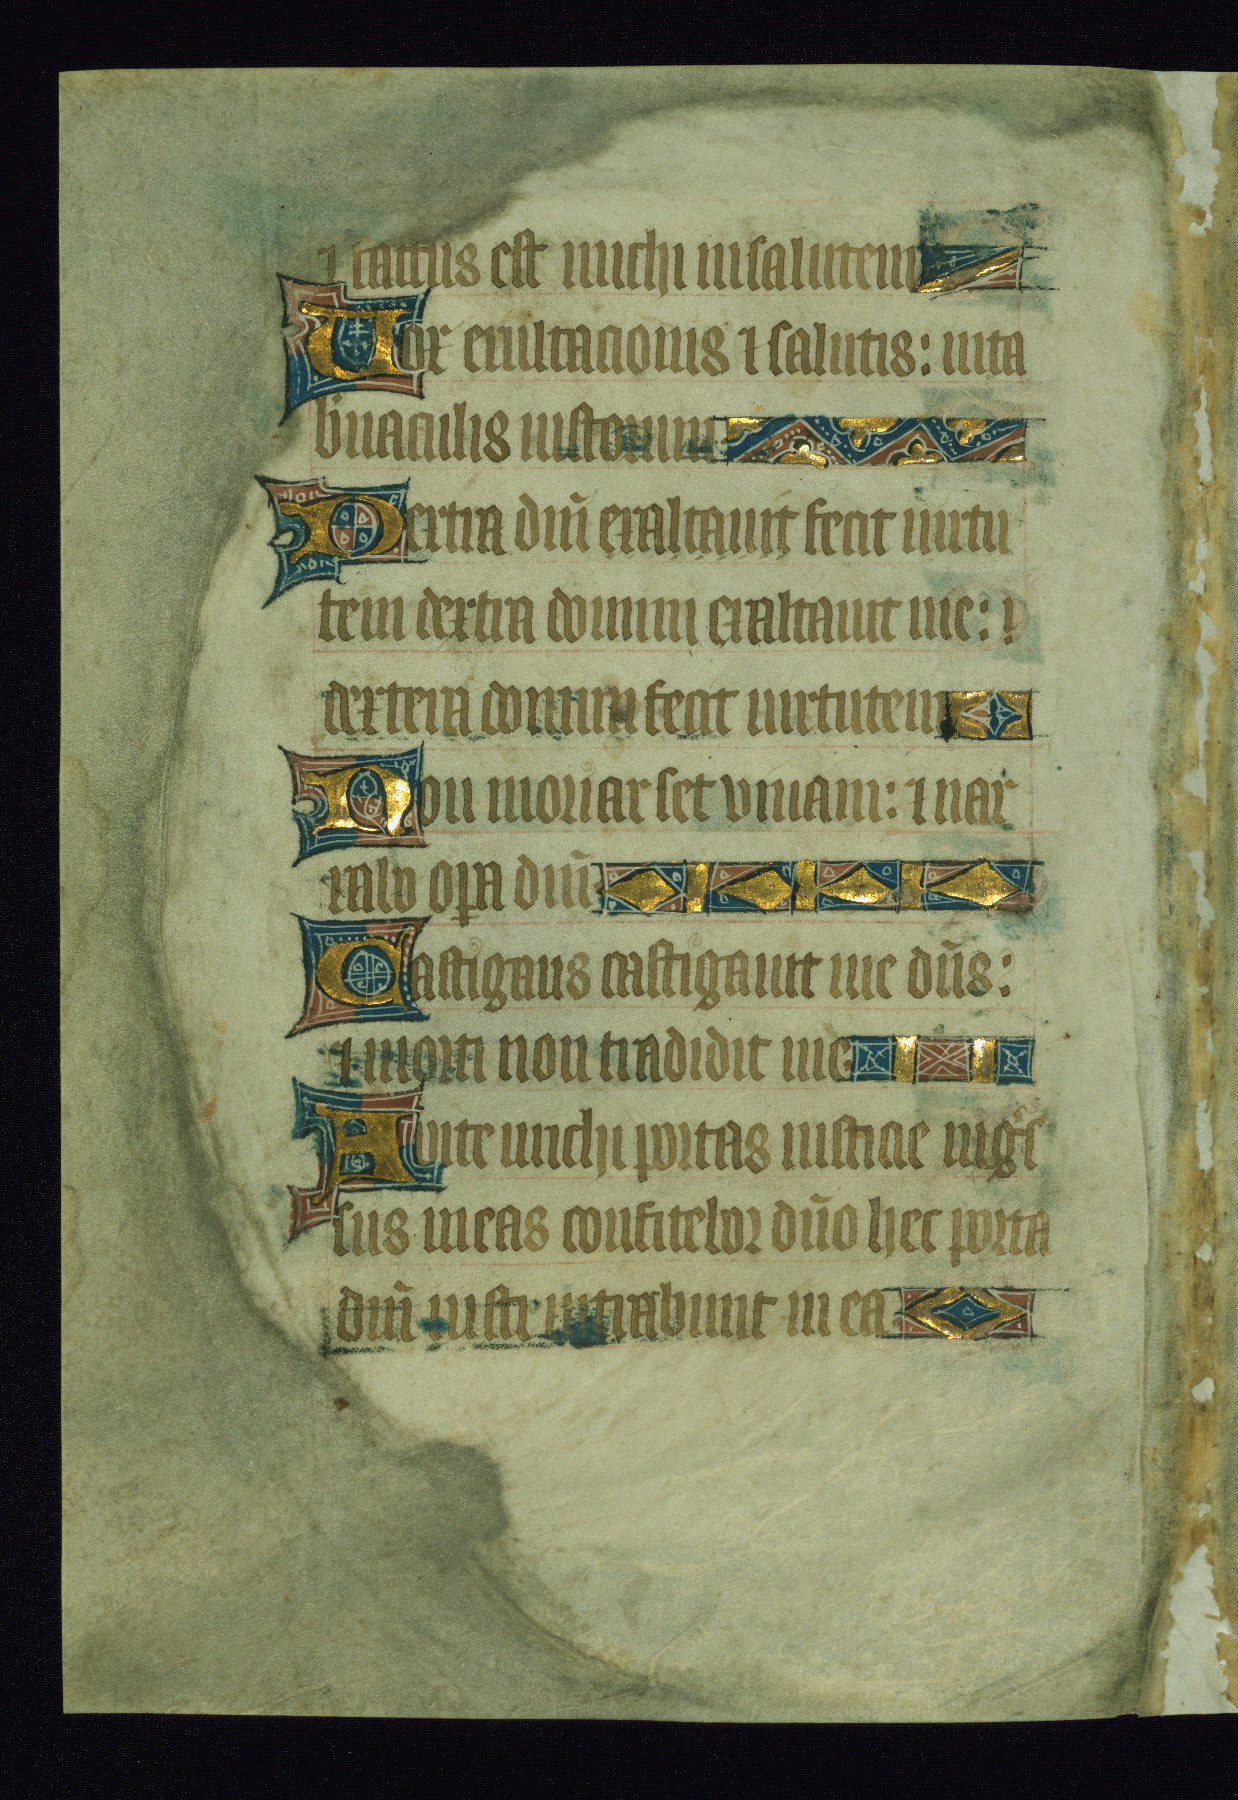 ⁊ factus est michi in salutem
Uox exultacionis ⁊ salutis: in ta
b̾naculis iustorum
Dextra dn̄i exaltauit fecit uirtu
tem dextra domini exaltauit me: ⁊
dextera domini fecit uirtutem
Non moriar set viuam: ⁊ nar
rabo opa dn̄i
Castigans castigauit me dn̄s:
⁊ morti non tradidit me
Aperite michi portas iusticie ingͥs
sus in eas confitebor dn̄o hec porta
dn̄i iusti intrabunt in ea